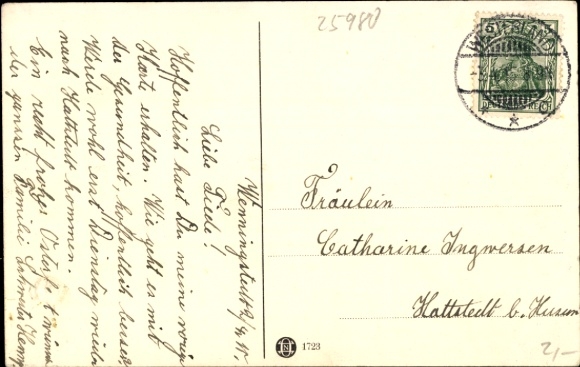 25980
WESTERLAND
Wenningstedt 2/4 11.
Liebe Tiede!
Hoffentlich hast Du meine vorige
Kart erhalten. Wie geht es mit
der Gesundheit, hoffentlich besser.
Werde wohl erst Dienstag wieder
nach Hattstedt kommen.
Ein recht frohes Osterfest wünscht
der ganzen Familie
Fräulein
Catharine Ingwersen
Hattstedt b. Husum
1723
2,-